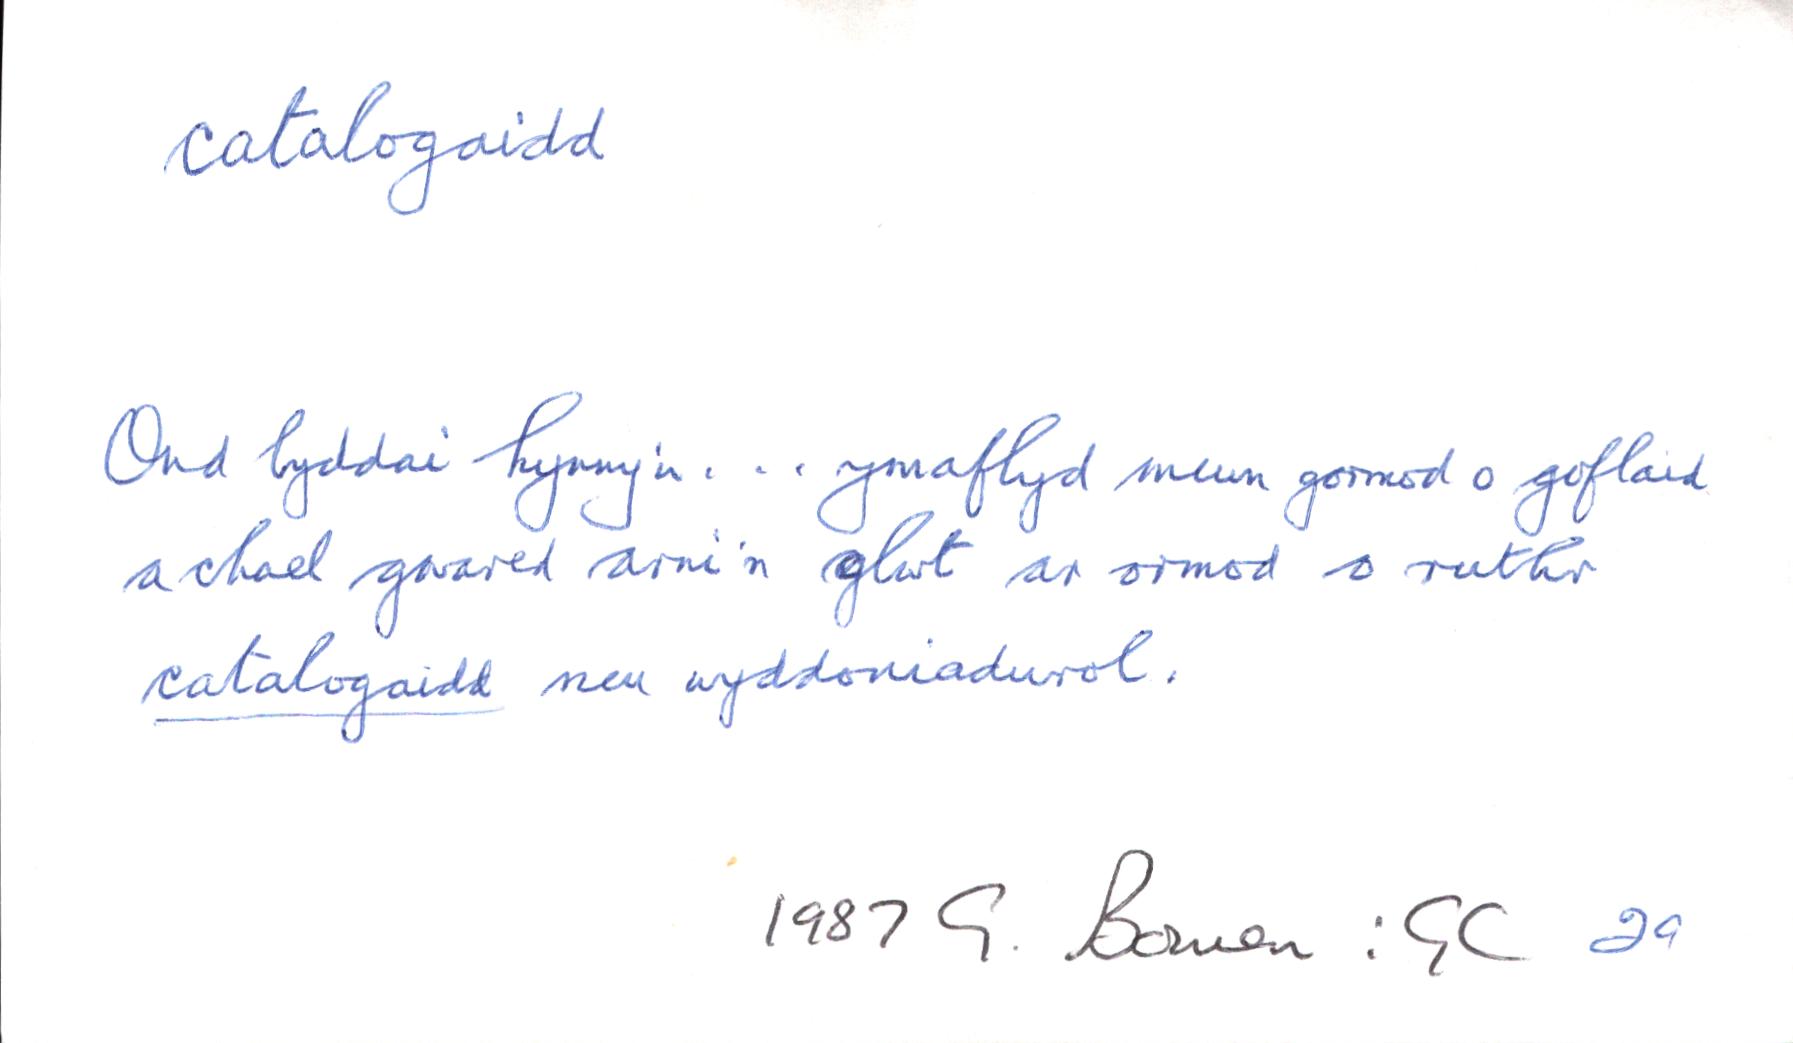 catalogaidd
Ond byddai hynny'n . . . ymaflyd mewn gormod o goflaid
a chael gwared arni'n glwt ar ormod o ruthr
catalogaidd neu wyddoniadurol.
1987 G. Bowen : GC 29